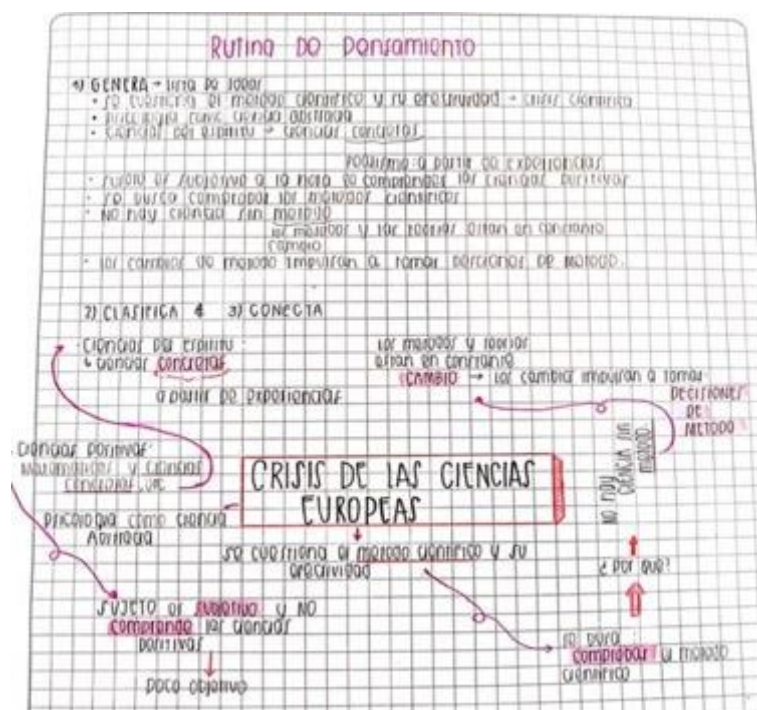 Rutina de pensamiento
1) GENERA → lista de ideas
• se cuestiona el metodo cientifico y su efectividad → crisis cientifica
• psicologia como ciencia abstracta
• Ciencias del espiritu → ciencias concretas
a partir de experiencias
• sujeto es subjetivo a la hora de comprender las ciencias positivas
• se busca comprobar los metodos cientificos
• No hay ciencia sin metodo
los metodos y las teorias estan en constante
cambio
• los cambios de metodo impulsan a tomar decisiones de metodo.
2) CLASIFICA & 3) CONECTA
Ciencias del espiritu:
↳ ciencias concretas
a partir de experiencias
los metodos y teorias
estan en constante
CAMBIO → los cambios impulsan a tomar
DECISIONES
DE
METODO
Ciencias positivas:
Matematicas y ciencias
concretas
CRISIS DE LAS CIENCIAS
EUROPEAS
psicologia como ciencia
Abstracta
se cuestiona el metodo cientifico y su
efectividad
NO HAY
CIENCIA SIN
metodo
¿por que?
SUJETO es subjetivo y NO
comprende las ciencias
positivas
poco objetivo
comprobar el metodo
cientifico